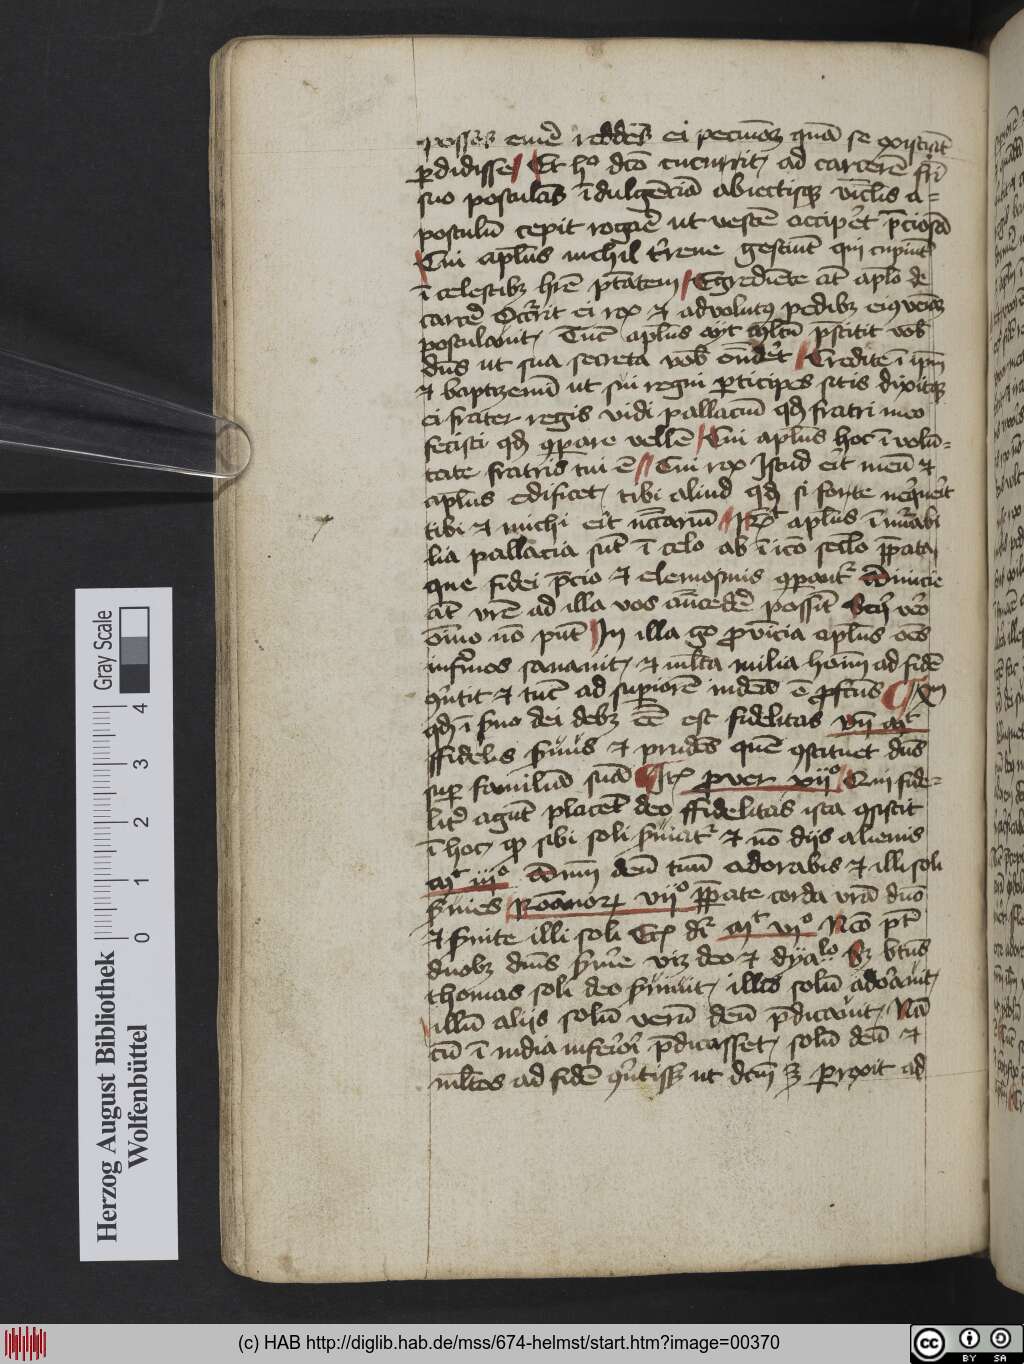 posses emere reddens ei pecuniam quam se existimat
perdidisse Et hoc dicto cucurrit ad carcerem fratri
suo postulans indulgenciam abiectisque vinculis a=
postulum cepit rogare ut vestem acciperet preciosam
Cui apostolus nichil terrene gestiunt qui cupiunt
in celestibus habere potestatem Egrediente autem apostolo de
carcere Occurrit ei rex et advolutus pedibus eius veniam
postulavit Tunc apostolus ayt multum prestitit vobis
dominus ut sua secreta vobis onderet Credite in ipsum
et baptizemini ut sui regni participes sitis dixitque
ei frater regis vidi pallacium quod fratri meo
fecisti quod comparare vellem Cui apostolus hoc in volun=
tate fratris tui est Cui rex Istud erit meum et
apostolus edificet tibi aliud quod si forte nequerit
tibi et michi erit necessarium Respondit apostolus innumerabi
lia pallacia sunt in celo ab inicio seculo preparata
que fidei precio et elemosinis comparantur divicie
autem vestre ad illa vos antecedere possunt sequi vero
omnino non possunt In illa ergo provincia apostolus omnes
infirmos sanavit et multa milia hominum ad fidem
convertit et tunc ad superiorem indeam est profectus
quod in servo dei debet esse est fidelitas
ffidelis servus et prudens quem constituet dominus
super familiam suam Item prover xii° Qui fide=
liter agunt placent deo ffidelitas ista consistit
in hoc quod sibi soli serviatur et non dijs alienis
mt iiii° dominum deum tuum adorabis et illi soli
servies Romanor vii° preparate corda vestra domino
et servite illi soli Etc dicitur mt vi° Nemo potest
duobus dominis servire videlicet deo et dyalo Sed beatus
thomas soli deo servivit illum solum adoravit
illum aliis solum verum deum predicavit Nam
cum in india inferiori predicasset solum deum et
multos ad fidem convertisset ut dictum est perrexit ad
Herzog August Bibliothek
Wolfenbüttel
0 1 2 3 4
Gray Scale
(c) HAB http://diglib.hab.de/mss/674-helmst/start.htm?image=00370
cc BY SA